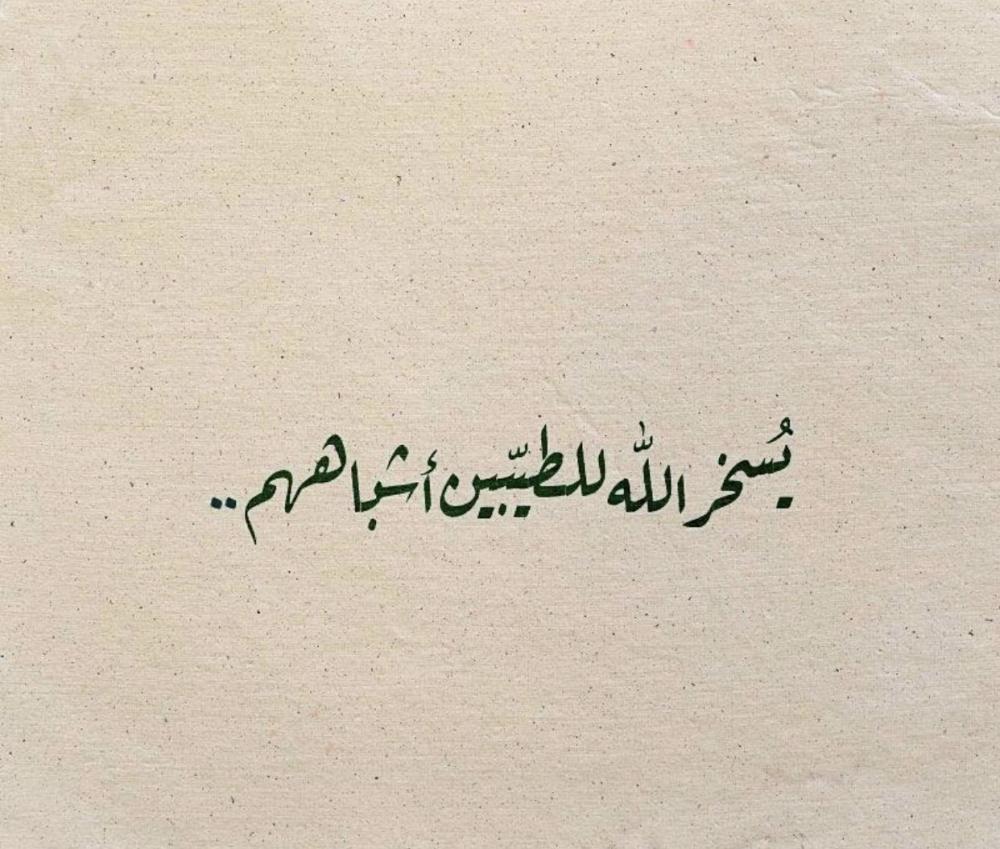 يُسخر اللّٰه للطيّبين أشباههم..